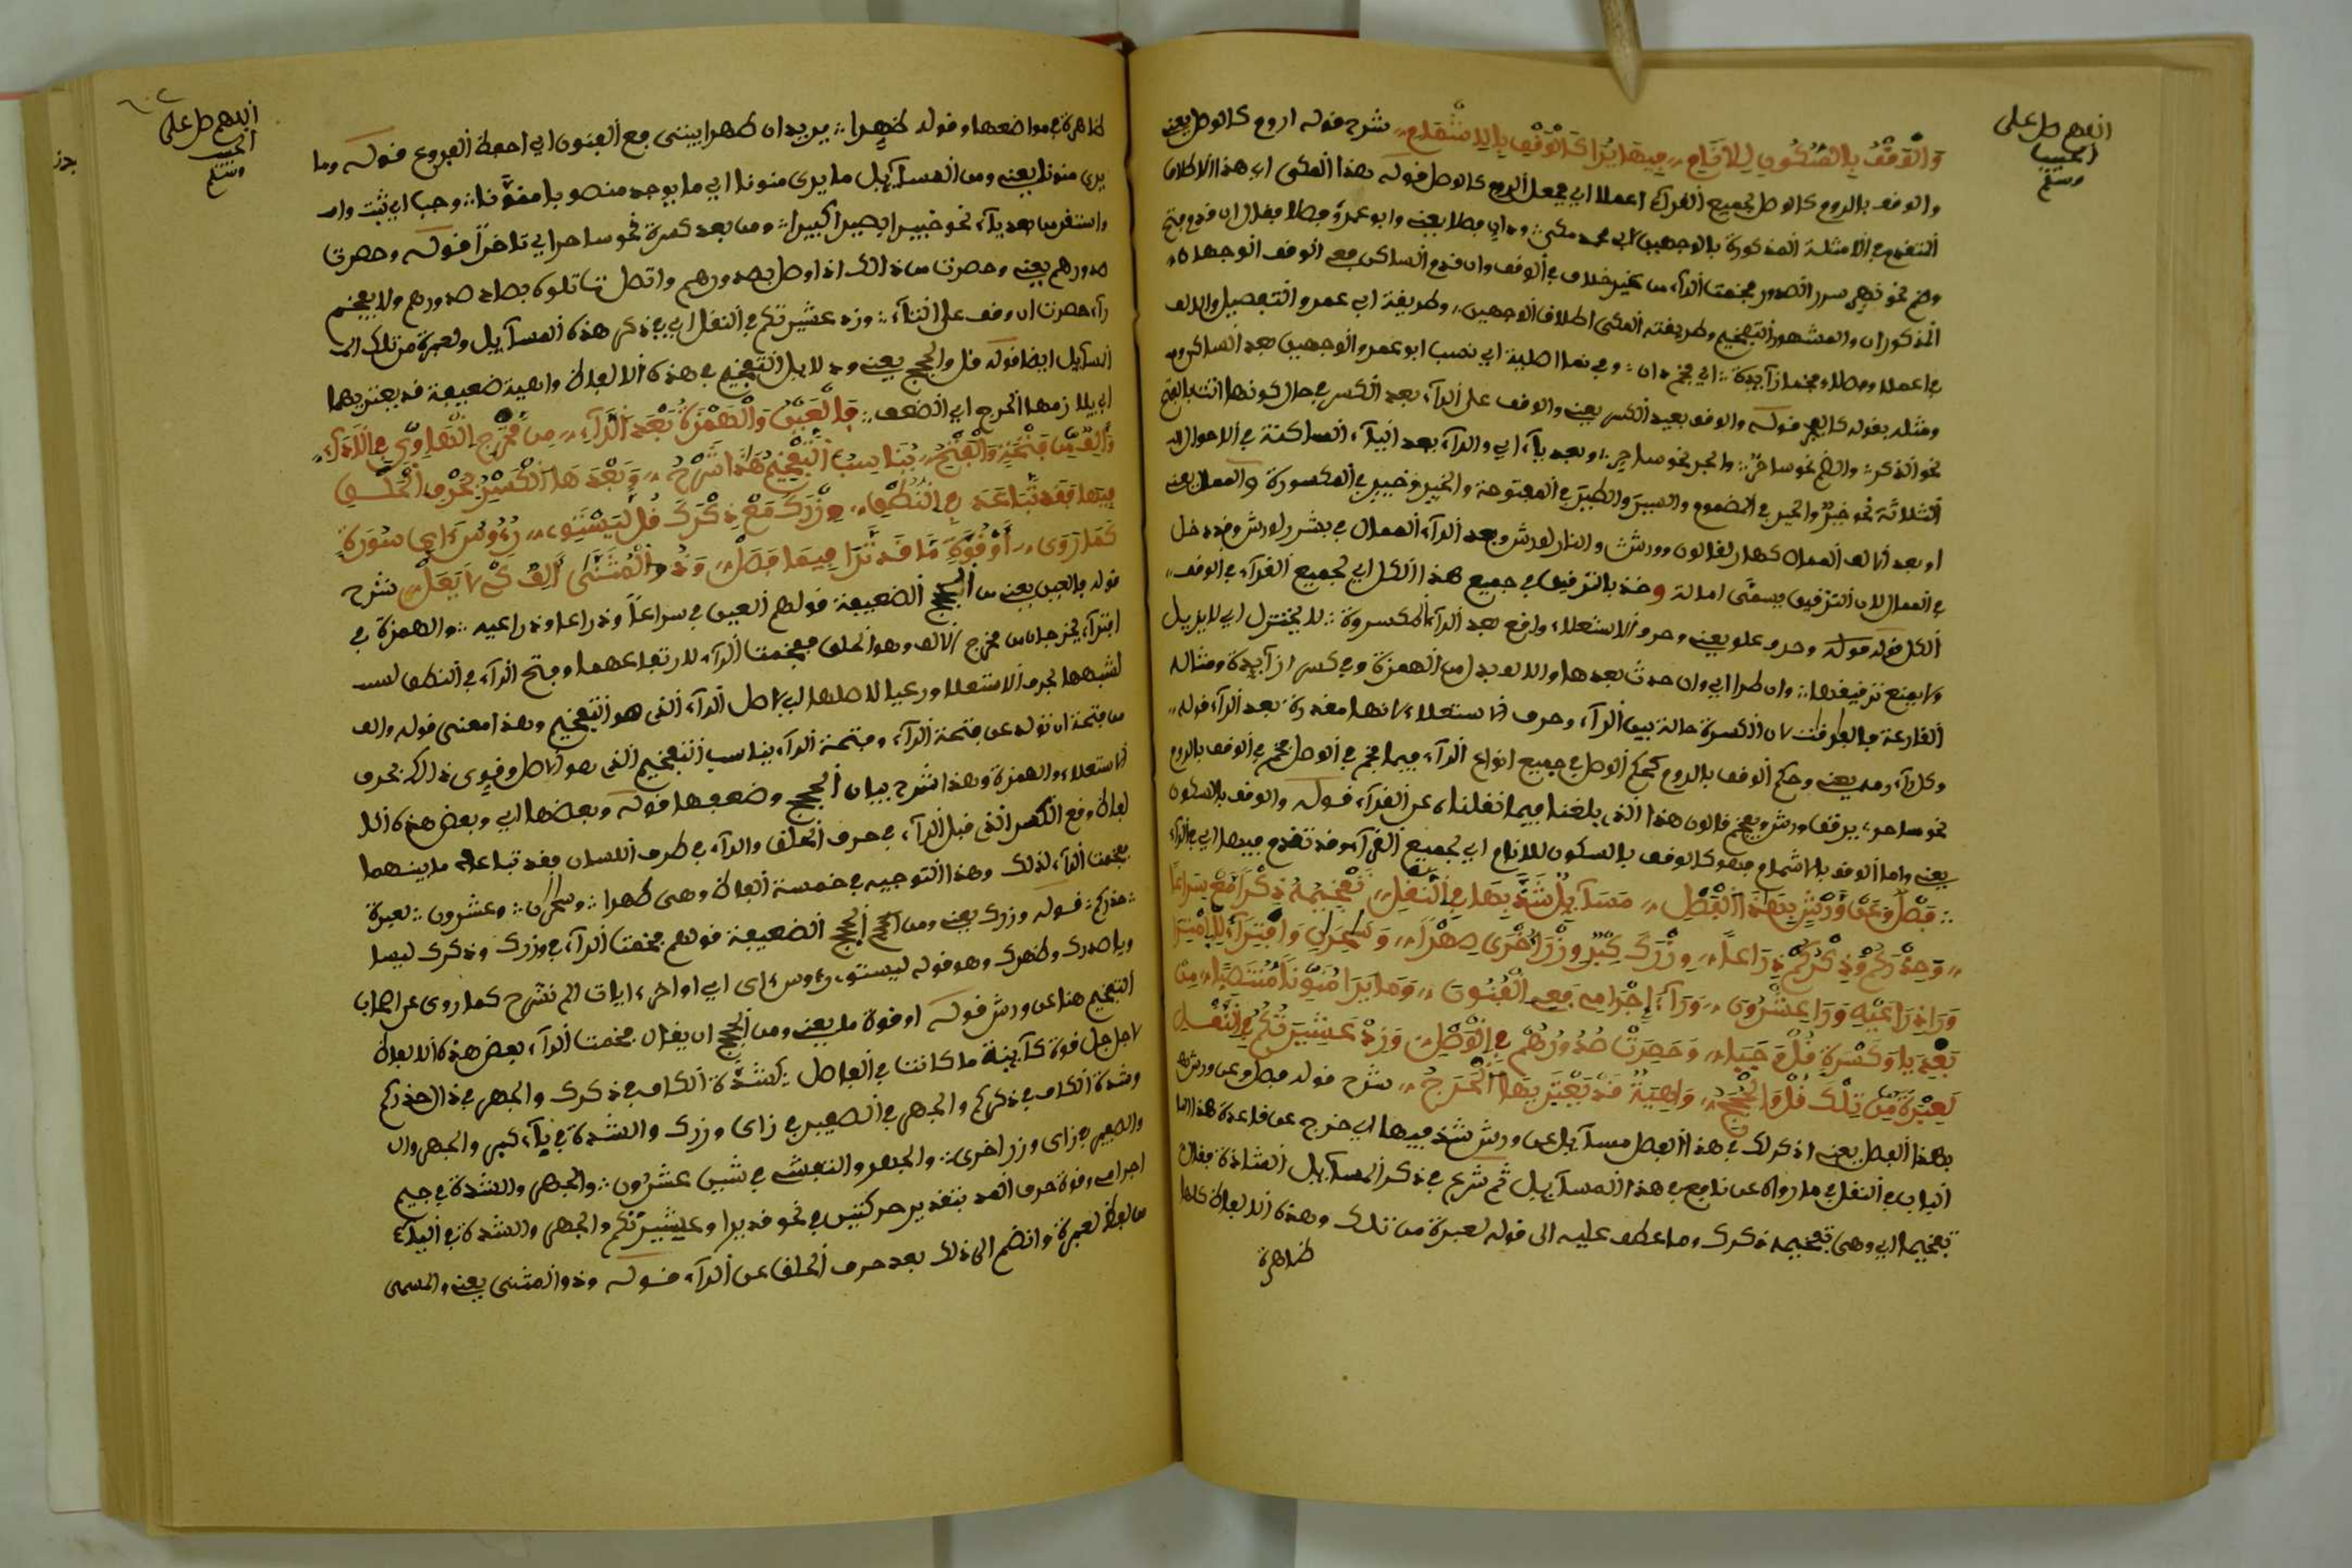 اللهم صل على
الحبيب
وسلم
وَالْوَقْفُ بِالسُّكُونِ لِلْأَنَامِ فِيهَا يُرَا كَالْوَقْفِ بِالِاشْمَامِ شرح قوله اروم كالوصل يعني
والوقف بالروم كالوصل لجميع القراء اعملا اي يجعل الروم كالوصل قوله هذا المكي اي هذا الاطلاق
التقدم في الامثلة المذكورة بالوجهين لابي محمد مكي وابو عمرو فصلا فقال ان قدم فتح
وضم نحو سرر الصدور فخمت الراء من غير خلاف في الوقف وان قدم الساكن ففي الوقف الوجهان
المذكوران والمشهور التفخيم وطريقته المكي اطلاق الوجهين وطريقة ابي عمرو التفصيل والالف
ومثله بقوله قوله والوقف بعيد الكسر يعني والوقف على الراء بعد الكسر في حال كونها
نحو الذكر والضم نحو ساحر والجر نحو ساحر وبعد ياء اي والراء بعد الياء الساكنة في الاحوال
الثلاثة نحو خبير والخير في المضموم والسير والطير في المفتوحة والخير وخبير في المكسورة والممال يعني
او بعد الالف الممال كهار لقالون وورش والنار لورش وبعد الراء الممال في بشرر لورش وقد دخل
في الممال لان الترقيق يسمى امالة وخذ بالترقيق في جميع هذا الكل اي لجميع القراء في الوقف
الكل قوله قوله وحرف علو يعني وحرف الاستعلاء واقع بعد الراء المكسورة لا يختزل اي لا يزيل
ولا يمنع ترقيقها وان طرا اي وان حدث بعدها والالف بدل من الهمزة وفي كسر زايدة ومثاله
القارعة فالكسرة حالة بين الراء وحرف الاستعلاء لانها مقدرة بعد الراء قوله
وكل راء يعني وحكم الوقف بالروم كحكم الوصل في جميع انواع الراء فيما فخم في الوصل فخم في الوقف بالروم
نحو ساحر يرققها ورش ويفخم قالون هذا الذي بلغنا فيما نقلناه عن القراء قوله والوقف بالسكون
يعني واما الوقف بالاشمام فهو كالوقف بالسكون للانام اي لجميع القراء وقد تقدم فيها اي في الراء
فَصْلٌ وَعَنْ وَرْشٍ بِهَذَا الْفَصْلِ مَسَآيِلُ شَذَّ بِهَا فِي النَّقْلِ تَفْخِيمُهُ ذِكْرًا مَعْ سِرَاعًا
وَحِذْرَكُمْ وَذِكْرَكُمْ ذِرَاعًا وِزْرَكَ كِبْرَ وِزْرَ اُخْرَى صِهْرَا وَسَاحِرَانِ وَافْتِرَآءً لِلْاِمْتِرَا
وَرَا ذِرَاعَيْهِ وَرَا عِشْرُونَ وَرَآءُ إِجْرَامِي مَعَ الْفُنُونَ وَمَا يَرَا مُنَوَّنًا مُنْتَصِبَا مِنْ
بَعْدِ يَا وَكَسْرَةٍ قُلْ وَجَبَا وَحَصِرَتْ صُدُورُهُمْ فِي الْوَصْلِ وَزِدْ عَشِيرَتُكُمُ فِي النَّقْلِ
لَعِبْرَةً مِنْ تِلْكَ قُلْ وَالْحُجَجُ وَاهِيَةٌ قَدْ يَعْتَرِيهَا الْحَرَجُ شرح قوله فصل وعن ورش
بهذا الفصل يعني اذكر لك في هذا الفصل مسآيل عن ورش شذ فيها اي خرج عن قاعدة هذا
الباب في النقل في ما رواه عن نافع في هذا المسآيل ثم شرع في ذكر المسآيل الشاذة فقال
تفخيما اي وهي تفخيمه ذكرك وما عطف عليه الى قوله لعبرة من تلك وهذه الالفاظ كلها
ظاهرة
اللهم صل على
الحبيب
وسلم
ظاهرة في مواضعها وقوله ظهرا يريد ان طهرا بيتي مع الفنون اي احفظ الفروع قوله وما
يرى منونا يعني ومن المسآيل ما يرى منونا اي ما يوجد منصوبا منونا وجبا اي ثبت
واستقر من بعد ياء نحو خبيرا بصيرا كبيرا ومن بعد كسرة نحو ساحرا قوله وحصرت
صدورهم يعني وحصرت من ذالك اذا وصل بصدورهم واتصل تاتلوه بصاد صدورهم ولا يفخم
راء حصرت ان وقف على التاء وزد عشيرتكم في النقل اي في ذكر هذه المسآيل ولعبرة من تلك
المسآيل ايضا قوله قل والحجج يعني ودلايل التفخيم في هذه الالفاظ واهية ضعيفة قد يعتريها
اي يلازمها الحرج اي الضعف فَالْعَيْنُ وَالْهَمْزَةُ بَعْدَ الرَّآءِ مِنْ مَخْرَجِ الْهَاوِي فِي
وَالْفَتْحُ يُنَاسِبُ التَّفْخِيمَ هَذَا شَرْحُ وَبَعْدَهَا الْكَسْرُ بِحَرْفِ الْحَلْقِ
فِيهَا فَقَدْ تَبَاعَدَ فِي النُّطْقِ وِزْرَكَ مَعْ ذِكْرَكَ قُلْ لِيَسْتَوِي رُءُوسُ اي سُورَةٍ
كَمَا رَوَى أَوْ قُوَّةٍ مَا قَدْ تَرَا فِيمَا فَصَلْ وَذُو الْمُثَنَّى اَلِفٌ شرح
قوله فالعين يعني من الحجج الضعيفة قولهم العين في سراعا وذراعا وذراعيه والهمزة في
افتراء يخرجان من مخرج الالف وهو الحلق ففخمت الراء لارتفاعهما وفتح الراء في النطق
لشبهها بحرف الاستعلا ورعيا لاصلها اي لاصل الراء الذي هو التفخيم وهذا معنى قوله والف
من فتحة ان تولد عن فتحة الراء وفتحة الراء يناسب التفخيم الذي هو الاصل وقوي ذالك بحرف
الاستعلاء والهمزة وهذا شرح بيان الحجج وضعفها قوله وبعضها اي وبعض هذه الالفاظ
وقع الكسر الذي قبل الراء في حرف الحلق والراء في طرف اللسان فقد تباعد ما بينهما
ففخمت الراء لذلك وهذا التوجيه في خمسة الفاظ وهي طهرا وساحران وعشرون لعبرة
حذركم قوله وزرك يعني ومن الحجج الضعيفة قولهم فخمت الراء في وزرك وذكرك ليسا
ويا صدرك وظهرك وهو قوله ليستوي رءوس اي اواخر ايات الم نشرح كما روى عن اصحاب
التفخيم هنا عن ورش قوله او قوة ما يعني ومن الحجج ان يقال فخمت الراء بعض هذه الالفاظ
لاجل قوة كآينة ما كانت في الفاصل كشدة الكاف في ذكرك والجهر في ذال حذركم
وشدة الكاف في ذكركم والجهر في الصفير في زاي وزرك والشدة في باء كبر والجهر
والصفير في زاي وزر اخرى والجهر والتفشي في شين عشرون والجهر والشدة في جيم
اجرامي وقوة حرف المد بتقدير حركتين في نحو قديرا وعشيرتكم والجهر والشدة في الباء
من لفظ لعبرة وانضم الى ذلك بعد حرف الحلق عن الراء قوله وذو المثنى يعني والمسمى